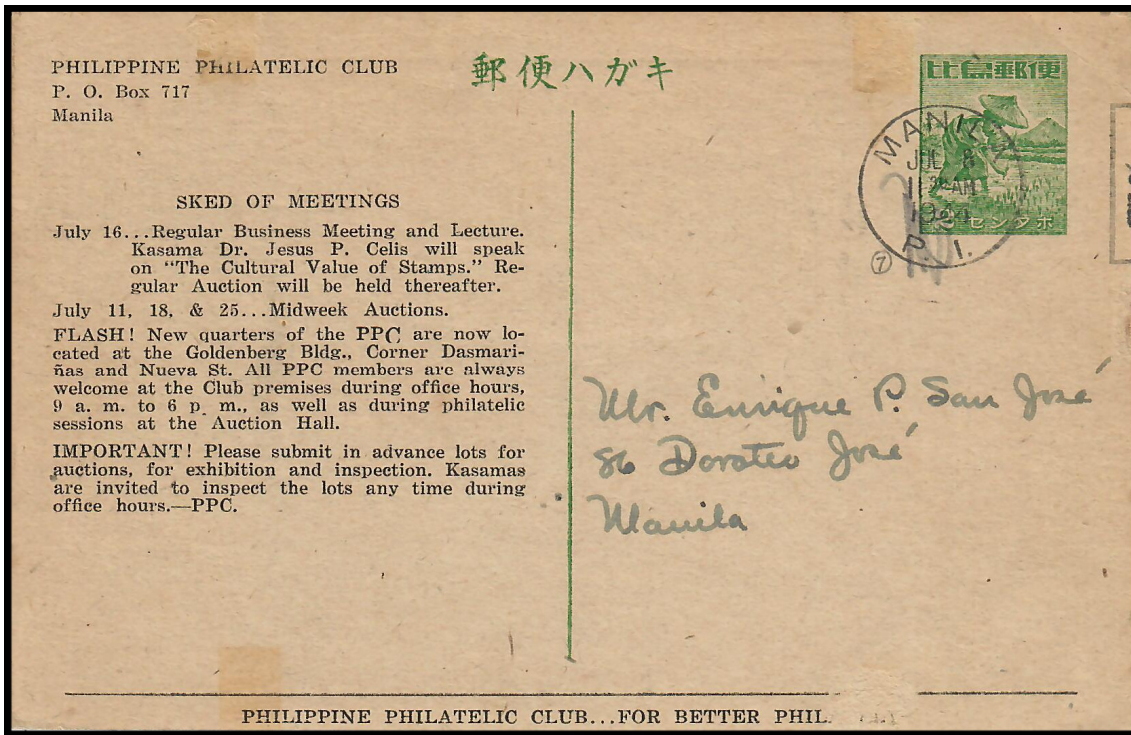 PHILIPPINE PHILATELIC CLUB
P. O. Box 717
Manila
郵便ハガキ
比島郵便
MANILA
JUL 8
11 30 AM
P. I.
7
2 センタボ
SKED OF MEETINGS
July 16...Regular Business Meeting and Lecture.
Kasama Dr. Jesus P. Celis will speak
on “The Cultural Value of Stamps.” Re-
gular Auction will be held thereafter.
July 11, 18, & 25...Midweek Auctions.
FLASH! New quarters of the PPC are now lo-
cated at the Goldenberg Bldg., Corner Dasmari-
ñas and Nueva St. All PPC members are always
welcome at the Club premises during office hours,
9 a. m. to 6 p. m., as well as during philatelic
sessions at the Auction Hall.
IMPORTANT! Please submit in advance lots for
auctions, for exhibition and inspection. Kasamas
are invited to inspect the lots any time during
office hours.—PPC.
Mr. Enrique P. San José
86 Doroteo José
Manila
PHILIPPINE PHILATELIC CLUB...FOR BETTER PHIL